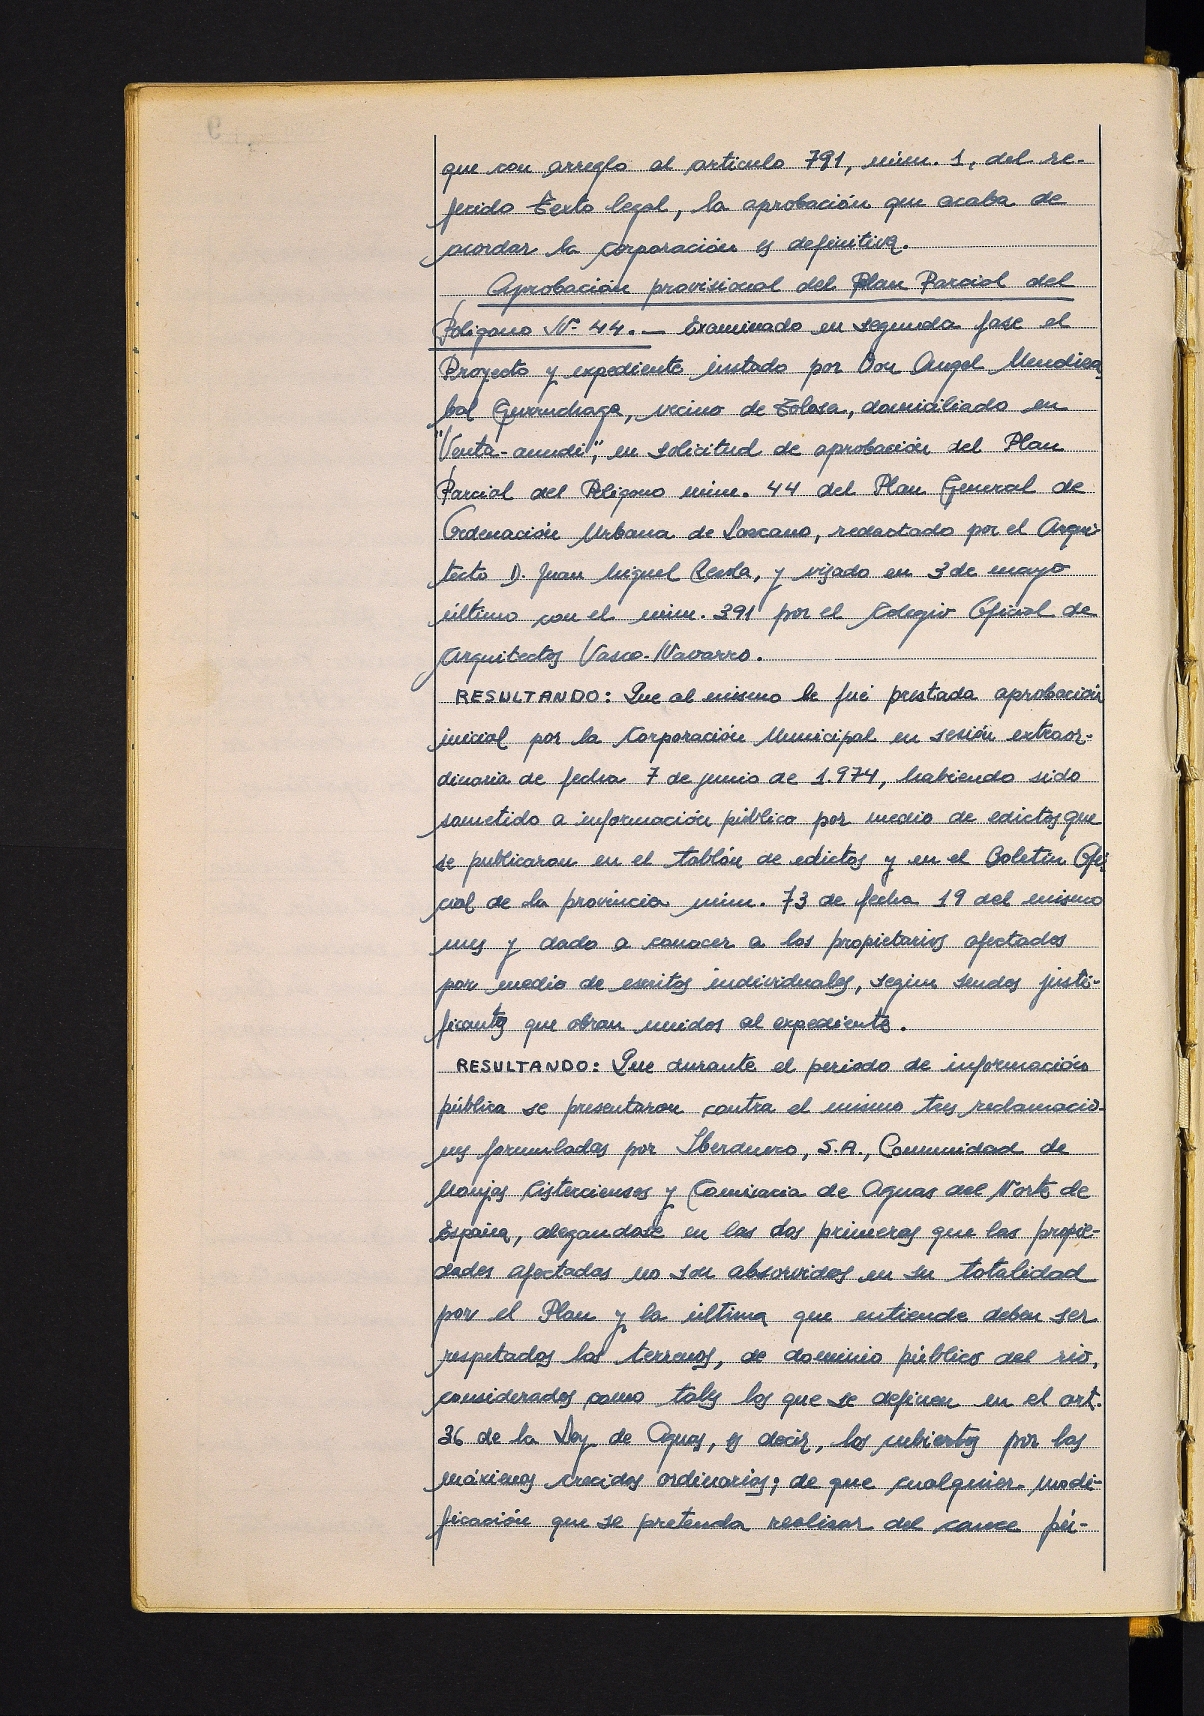 que con arreglo al articulo 791, núm. 1, del re-
ferido Texto legal, la aprobación que acaba de
acordar la Corporación es definitiva.
Aprobación provisional del Plan Parcial del
Poligono Nº 44. — Examinado en segunda fase el
Proyecto y expediente instado por Don Angel Mendiza
bal Gurruchaga, vecino de Tolosa, domiciliado en
"Venta-aundi", en solicitud de aprobación del Plan
Parcial del Poligono núm. 44 del Plan General de
Ordenación Urbana de Lazcano, redactado por el Arqui-
tecto D. Juan Miguel Rezola, y visado en 3 de mayo
último con el núm. 391 por el Colegio Oficial de
Arquitectos Vasco-Navarro.
RESULTANDO: Que al mismo le fué prestada aprobación
inicial por la Corporación Municipal en sesión extraor-
dinaria de fecha 7 de junio de 1.974, habiendo sido
sometido a información pública por medio de edictos que
se publicaron en el tablón de edictos y en el Boletín Ofi
cial de la provincia núm. 73 de fecha 19 del mismo
mes y dado a conocer a los propietarios afectados
por medio de escritos individuales, según sendos justi-
ficantes que obran unidos al expediente.
RESULTANDO: Que durante el periodo de información
pública se presentaron contra el mismo tres reclamacio-
nes formuladas por Iberduero, S.A., Comunidad de
Monjas Cistercienses y Comisaria de Aguas del Norte de
España, alegandose en las dos primeras que las propie-
dades afectadas no son absorvidas en su totalidad
por el Plan y la última que entiende deben ser
respetados los terrenos, de dominio público del rio,
considerados como tales los que se definen en el art.
36 de la Ley de Aguas, es decir, los cubiertos por las
máximas crecidas ordinarias; de que cualquier modi-
ficación que se pretenda realizar del cauce pú-